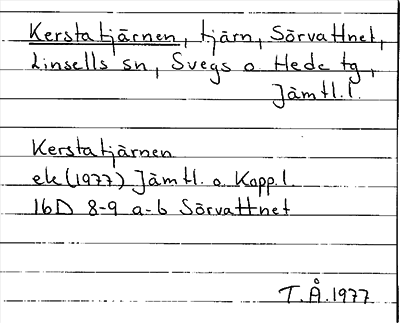 Kerstatjärnen, tjärn, Sörvattnet,
Linsells sn, Svegs o Hede tg,
Jämtl.l.
Kerstatjärnen
ek (1977) Jämtl. o Kopp.l.
16D 8-9 a-b Sörvattnet
T.Å.1977